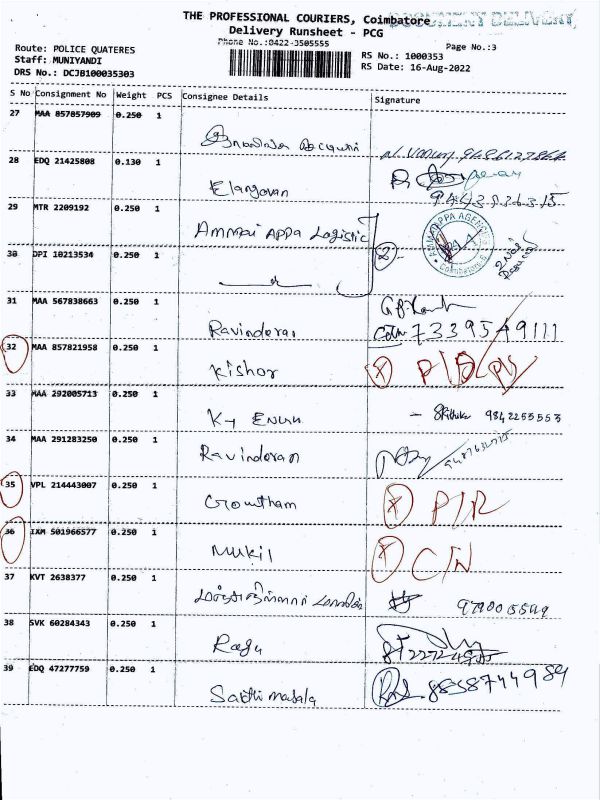 THE PROFESSIONAL COURIERS, Coimbatore
DOCUMENT DELIVERY
Delivery Runsheet - PCG
Phone No.:0422-3505555
Page No.:3
Route: POLICE QUATERES
RS No.: 1000353
Staff: MUNIYANDI
RS Date: 16-Aug-2022
DRS No.: DCJB100035303
S No Consignment No Weight PCS Consignee Details Signature
27 MAA 857857909 0.250 1
28 EDQ 21425808 0.130 1 Elangovan
29 MTR 2209192 0.250 1 Ammai Appa Logistic
30 DPI 10213534 0.250 1
31 MAA 567838663 0.250 1 Ravinderan 7339549111
32 MAA 857821958 0.250 1 Kishor
33 MAA 292005713 0.250 1 9842255553
34 MAA 291283250 0.250 1 Ravinderan
35 VPL 214443007 0.250 1 Gowtham P/R
36 IXM 501966577 0.250 1 Mukil C/N
37 KVT 2638377 0.250 1
38 SVK 60284343 0.250 1 Ragu
39 EDQ 47277759 0.250 1 Sakthi masala 8838744989